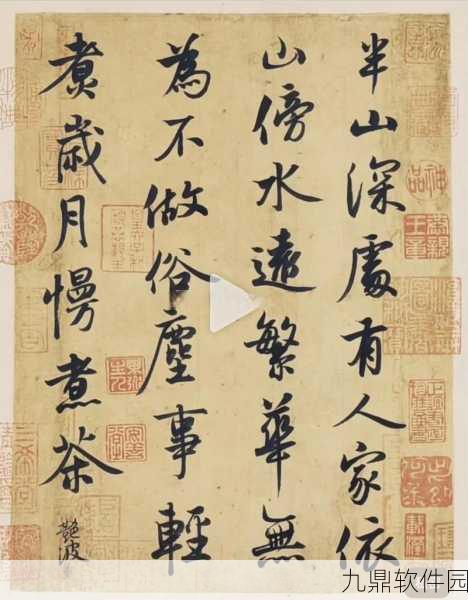 半山深處有人家依
山傍水遠繁華無
為不做俗塵事輕
煑歲月慢煮茶
艷波
九鼎软件园